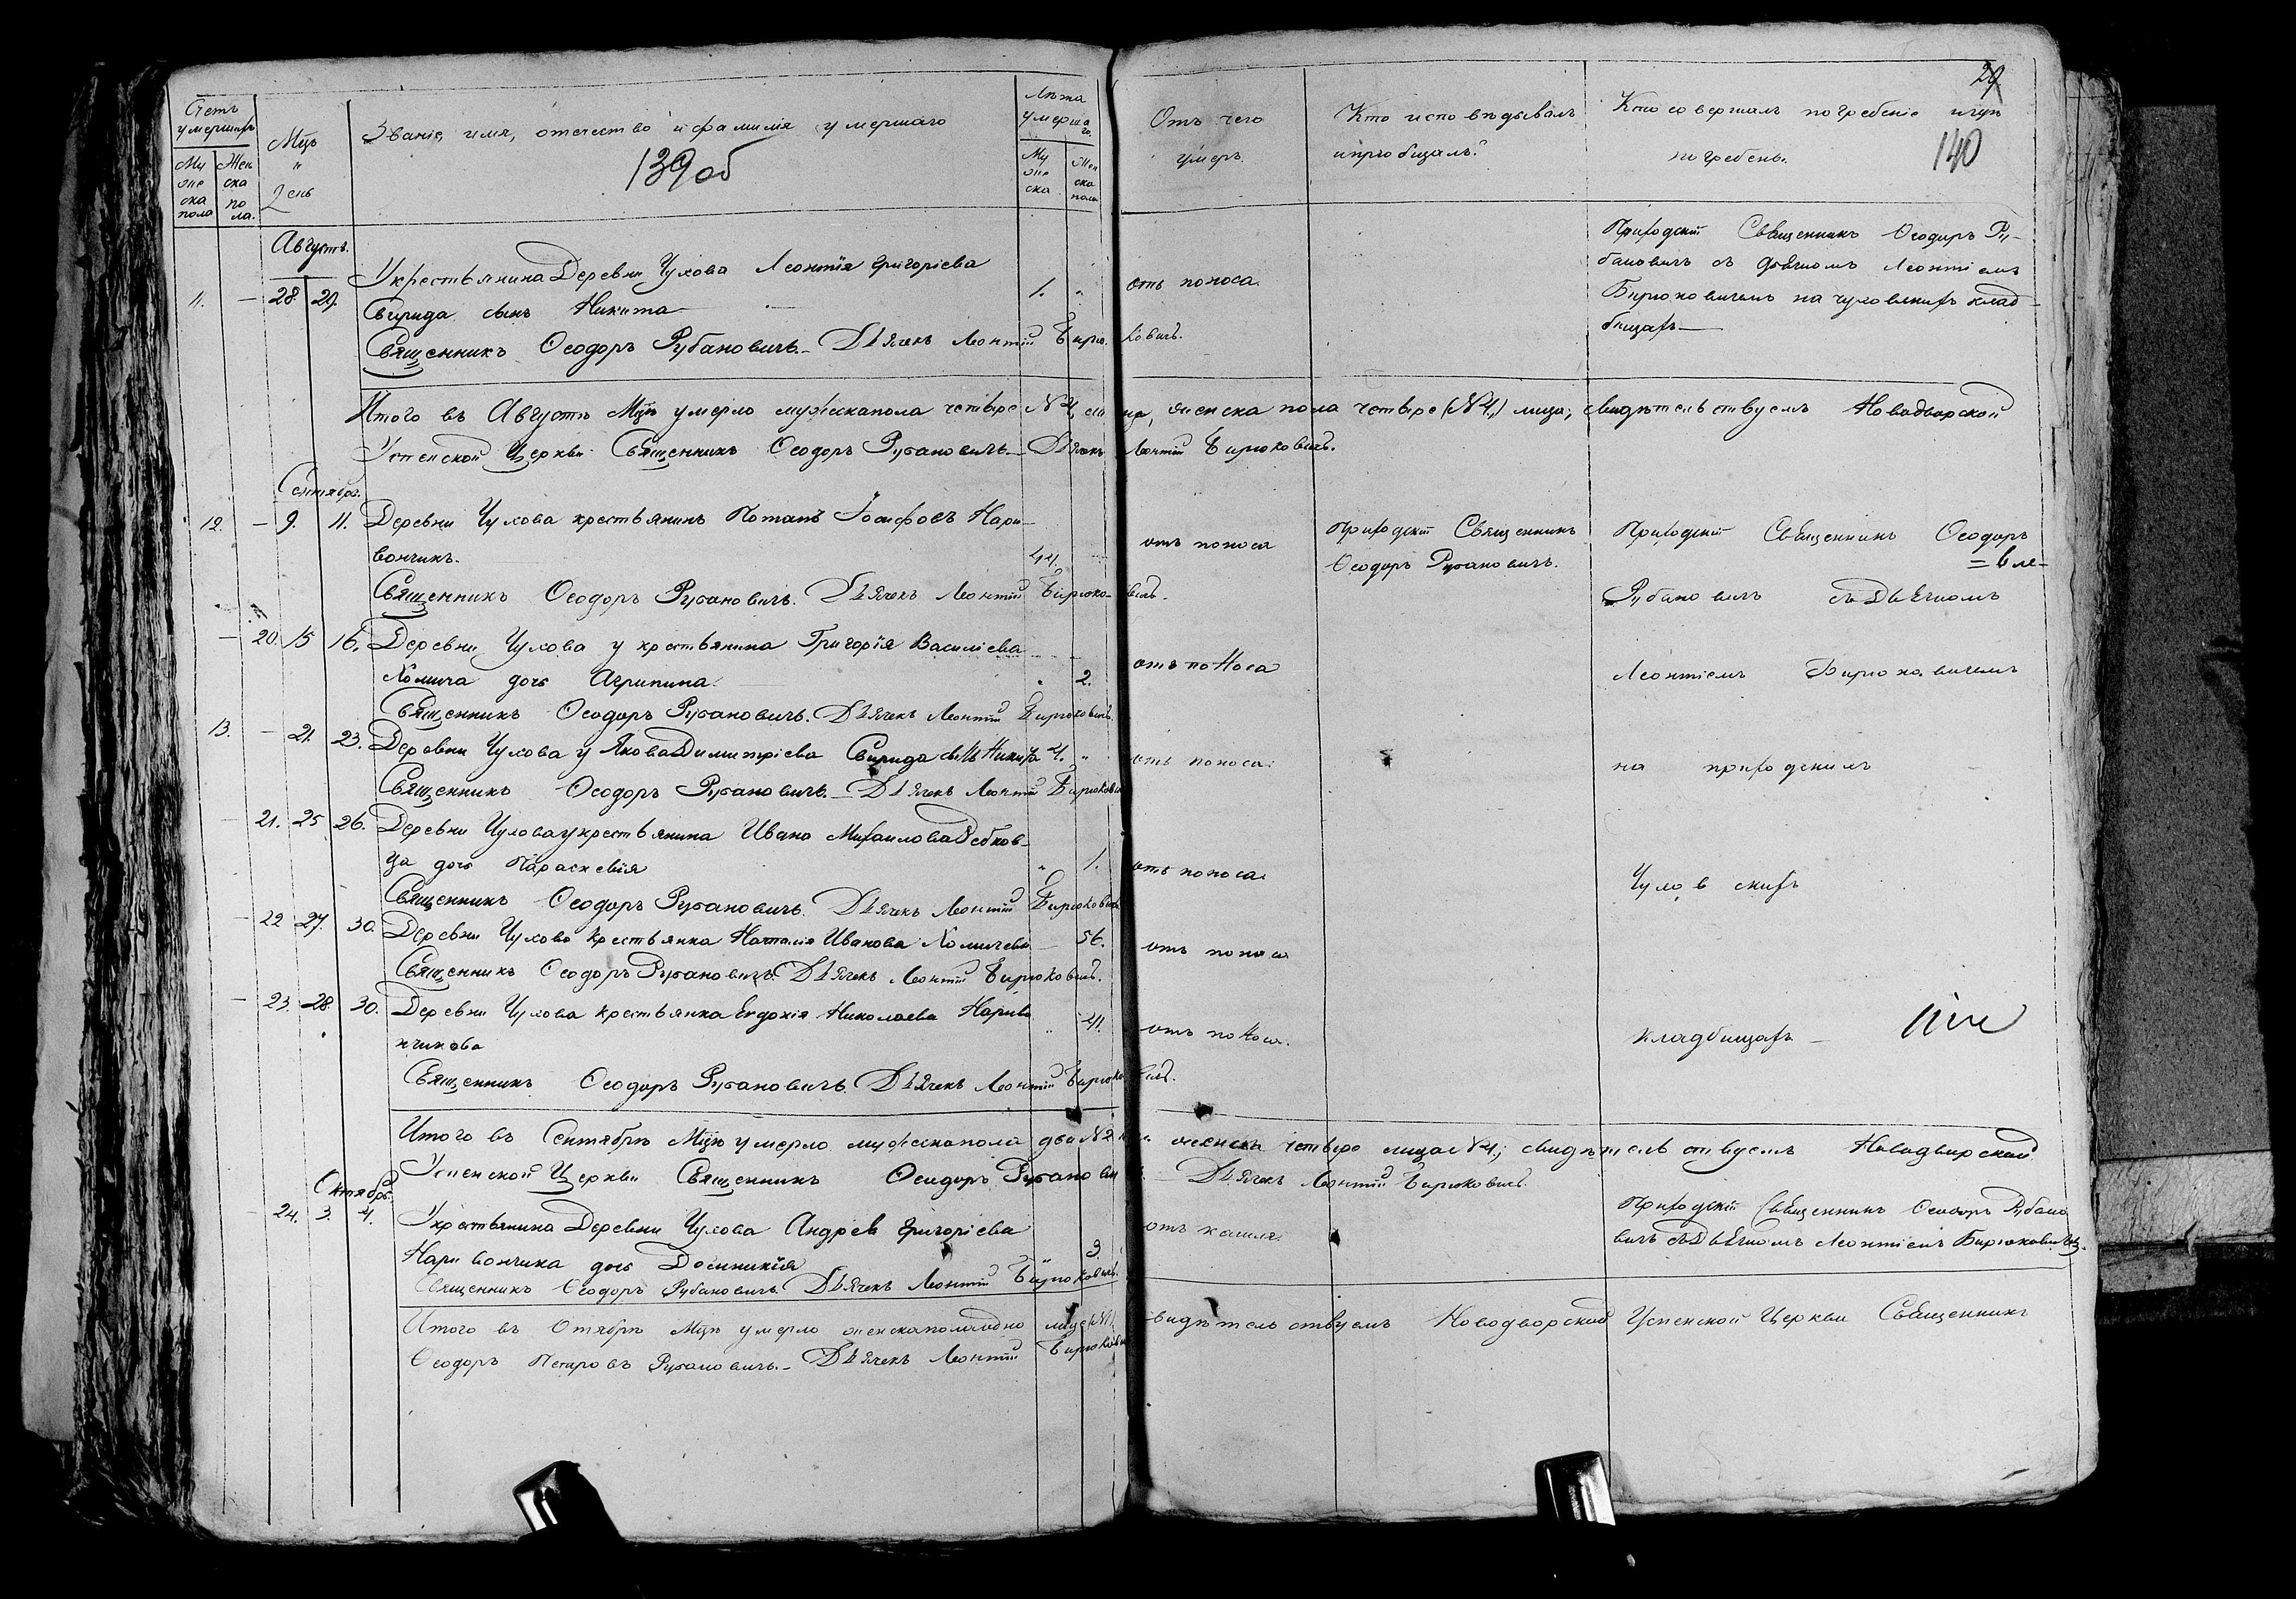 Счетъ умершихъ
Мужеска пола
Женска пола.
Мцъ и день
Званіе, имя, отечество и фамилія умершаго
139об
Лѣта умершаго.
Мужеска
Женска пола
Отъ чего умеръ.
Кто исповѣдывалъ и пріобщалъ?
Кто совершалъ погребеніе и гдѣ погребенъ.
29
140
Августъ.
11. — 28. 29. У крестьянина Деревни Чухова Леонтія Григоріева
Свирида сынъ Никита — 1. „ отъ поноса.
Священникъ Ѳеодоръ Рубановичъ. – Дьячекъ Леонтій Бирюковичъ.
Приходскій Священникъ Ѳеодоръ Ру-
бановичъ съ Дьячкомъ Леонтіемъ
Бирюковичемъ на чуховскихъ клад-
бищахъ —
Итого въ Августѣ Мцѣ умерло мужеска пола четыре №4, лица, женска пола четыре (№4,) лица; свидѣтельствуемъ Новодворской
Успенской Церкви Священникъ Ѳеодоръ Рубановичъ. – Дьячекъ Леонтій Бирюковичъ.
Сентябрь.
12. — 9. 11. Деревни Чухова крестьянинъ Потапъ Іосифовъ Нари-
вончикъ. 44. отъ поноса
Приходскій Священникъ
Ѳеодоръ Рубановичъ.
Священникъ Ѳеодоръ Рубановичъ. Дьячекъ Леонтій Бирюковичъ.
— 20. 15 16. Деревни Чухова у крестьянина Григорія Василіева
Хомича дочь Агрипина. „ 2. отъ поноса
Священникъ Ѳеодоръ Рубановичъ. Дьячекъ Леонтій Бирюковичъ.
13. — 21. 23. Деревни Чухова у Якова Димитріева Свирида сынъ Никита 4. „ отъ поноса.
Священникъ Ѳеодоръ Рубановичъ. – Дьячекъ Леонтій Бирюковичъ
— 21. 25 26. Деревни Чухова у крестьянина Ивана Михаилова
дочь Параскевія „ 1. отъ поноса.
Священникъ Ѳеодоръ Рубановичъ. Дьячекъ Леонтій Бирюковичъ.
— 22 27. 30. Деревни Чухова крестьянка Наталія Иванова Хомичева — 56. отъ поноса
Священникъ Ѳеодоръ Рубановичъ. Дьячекъ Леонтій Бирюковичъ.
— 23. 28. 30. Деревни Чухова крестьянка Евдокія Николаева Нариво-
нчикова „ 41. отъ поноса.
Священникъ Ѳеодоръ Рубановичъ. Дьячекъ Леонтій Бирюковичъ.
Приходскій Священникъ Ѳеодоръ
Рубановичъ съ Дьячкомъ
Леонтіемъ Бирюковичемъ
на приходскихъ
Чуховскихъ
кладбищахъ —
Итого въ Сентябрѣ Мцѣ умерло мужеска пола два №2 женска четыре лица №4; свидѣтельствуемъ Новодворской
Успенской Церкви Священникъ Ѳеодоръ Рубановичъ. Дьячекъ Леонтій Бирюковичъ.
Октябрь.
— 24. 3. 4. У крестьянина Деревни Чухова Андрея Григоріева
Наривончика дочь Домникія „ 3. отъ кашля.
Священникъ Ѳеодоръ Рубановичъ. Дьячекъ Леонтій Бирюковичъ.
Приходскій Священникъ Ѳеодоръ Рубано
вичъ съ Дьячкомъ Леонтіемъ Бирюковичемъ.
Итого въ Октябрѣ Мцѣ умерло женска пола одно лице (№1, свидѣтельствуемъ Новодворской Успенской Церкви Священникъ
Ѳеодоръ Петровъ Рубановичъ. – Дьячекъ Леонтій Бирюковичъ